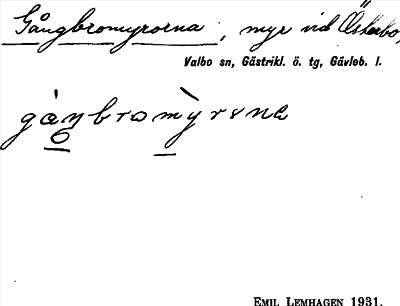 Gångbromyrorna, myr vid Österbo,
Valbo sn, Gästrikl. ö. tg, Gävleb. l.
gå̀ŋbromỳrɐna
EMIL LEMHAGEN 1931.